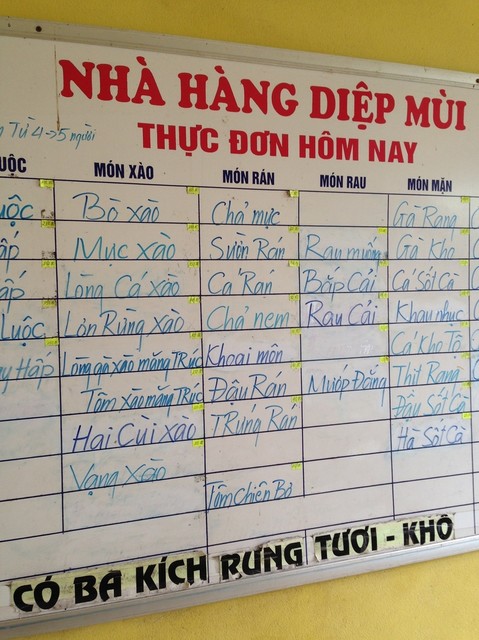 NHÀ HÀNG DIỆP MÙI
THỰC ĐƠN HÔM NAY
Từ 4->5 người
UỘC MÓN XÀO MÓN RÁN MÓN RAU MÓN MẶN
uộc Bò xào Chả mực Gà Rang
ấp Mực xào Sườn Rán Rau muống Gà Kho
ấp Lòng Cá xào Cá Rán Bắp Cải Cá Sốt Cà
Luộc Lợn Rừng xào Chả nem Rau Cải Khau nhục
Hấp Lòng gà xào măng TRúc Khoai môn Cá Kho Tộ
Tôm xào măng TRúc Đậu Rán Mướp Đắng Thịt Rang
Hai Cùi xào TRứng Rán Đậu Sốt Cà
Vạng xào Hà Sốt Cà
Tôm Chiên Bơ
CÓ BA KÍCH RỪNG TƯƠI - KHÔ